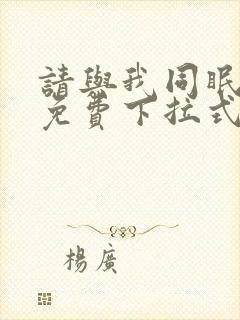 請與我同眠
免費下拉式
楊廣